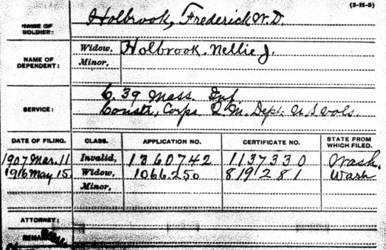 (3-35-8)
NAME OF SOLDIER: Holbrook, Frederick W. D.
NAME OF DEPENDENT: Widow, Holbrook, Nellie J.
Minor,
SERVICE: C. 39 Mass. Inf
Constr. Corps Q. M. Dept. U. S. Vols.
DATE OF FILING. CLASS. APPLICATION NO. CERTIFICATE NO. STATE FROM WHICH FILED.
1907 Mar. 11 Invalid, 1360742 1137330 Wash.
1916 May 15 Widow, 1066.250 819281 Wash
Minor,
ATTORNEY: